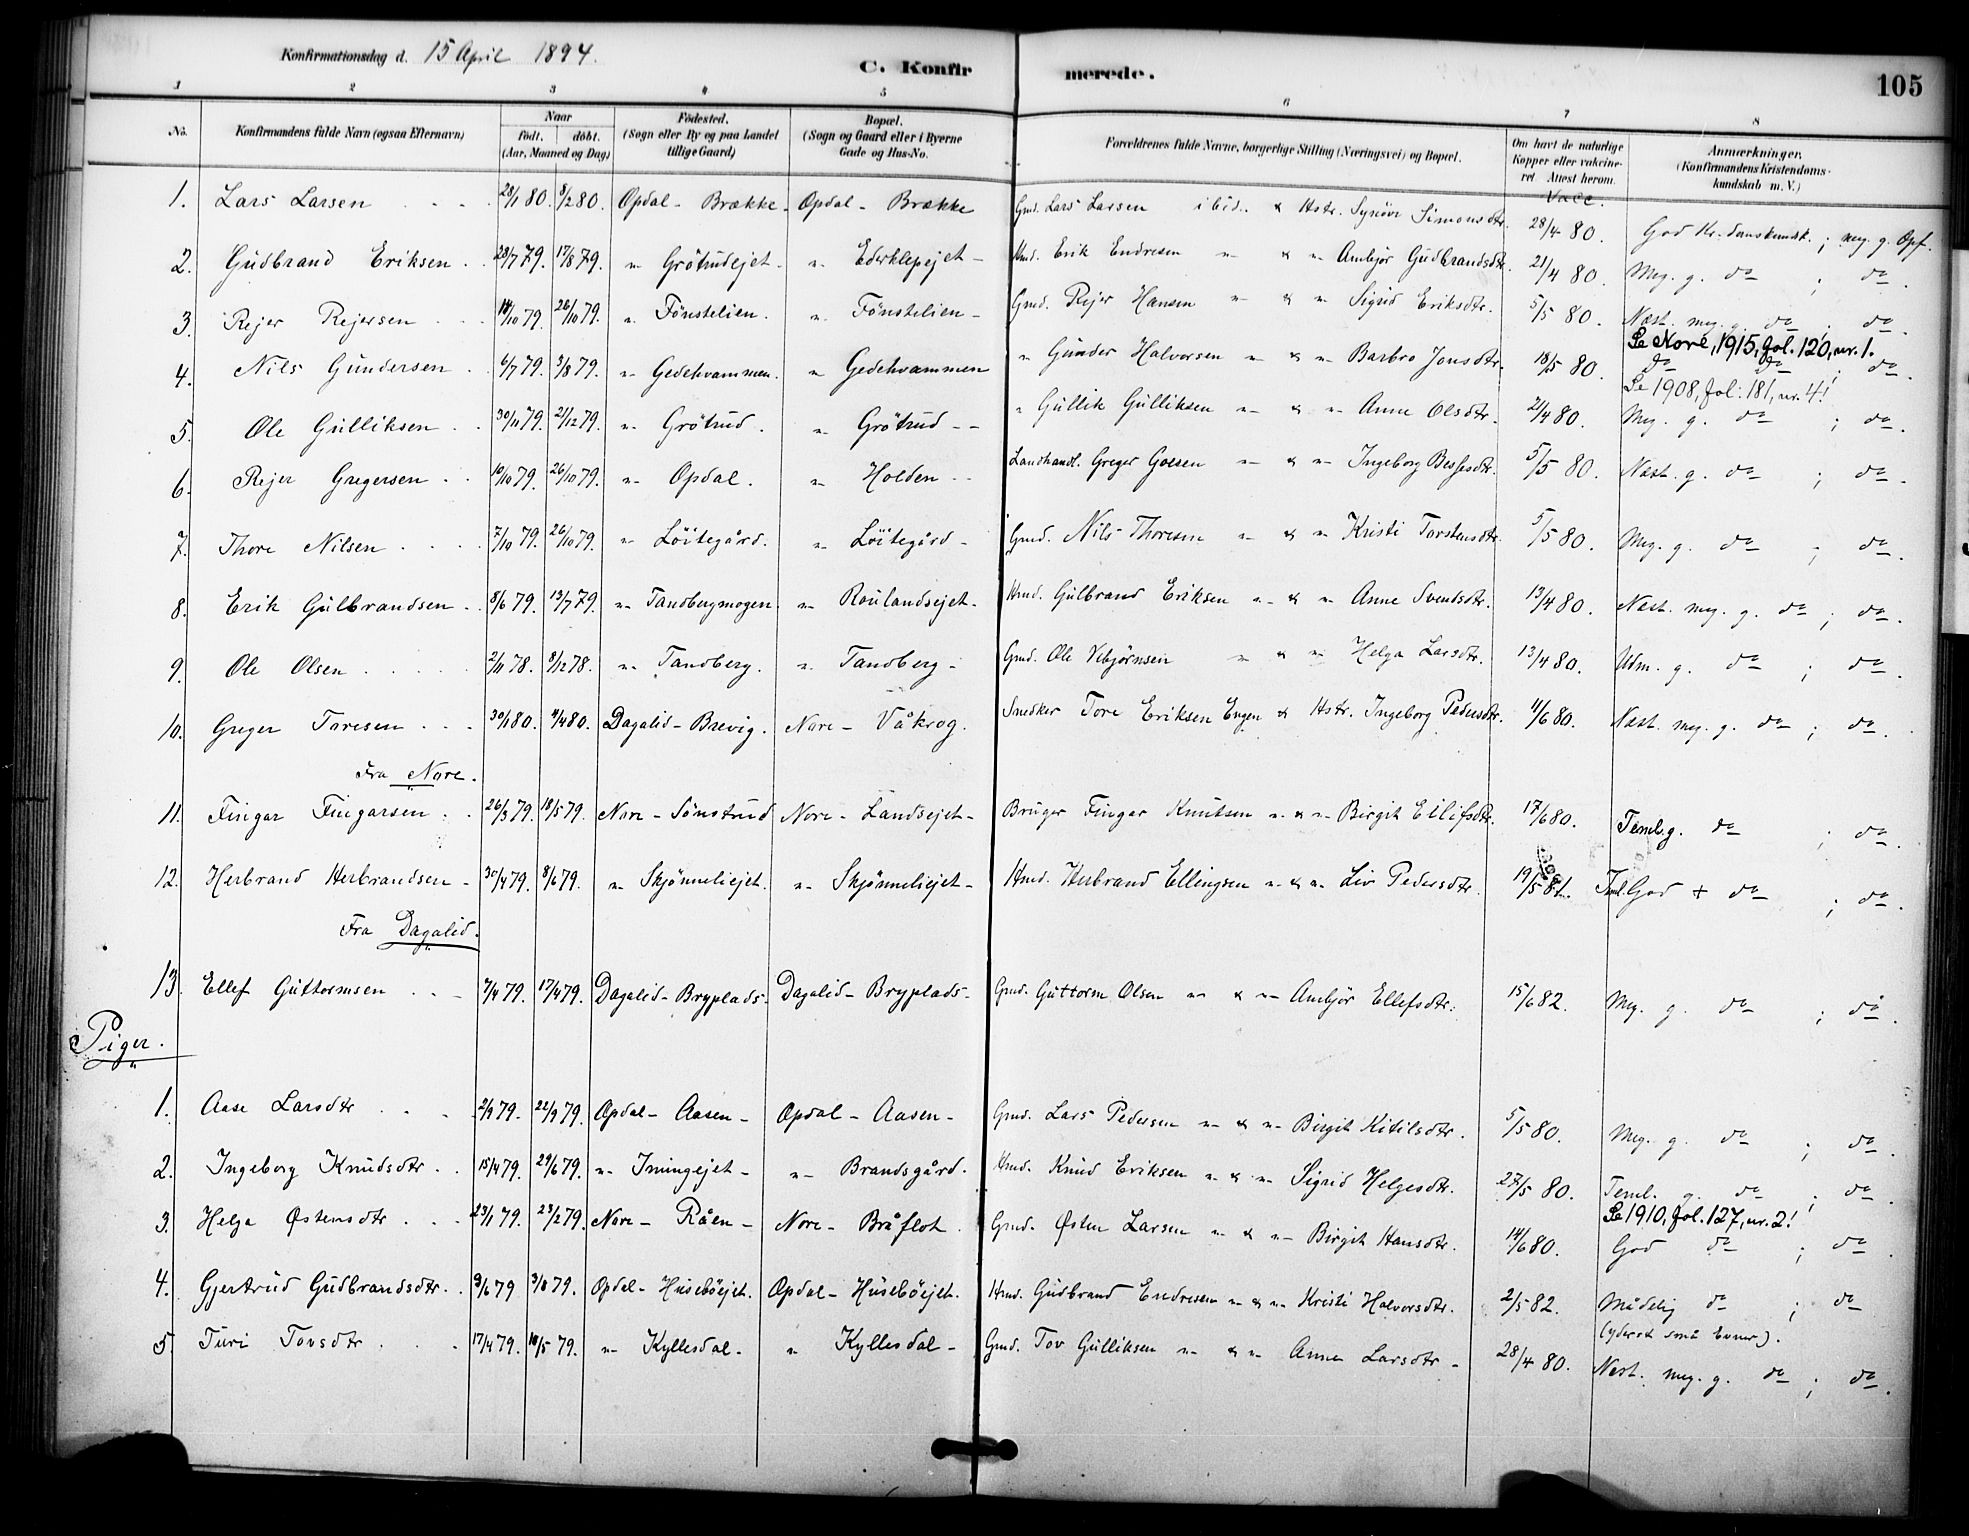 Konfirmationsdag d. 15 April 1894.
C. Konfirmerede.
105
1 2 3 4 5 6 7 8
No. Konfirmandens fulde Navn (ogsaa Efternavn) Naar født. døbt. (Aar, Maaned og Dag) Fødested. (Sogn eller By og paa Landet tillige Gaard) Bopæl. (Sogn og Gaard eller i Byerne Gade og Hus-No. Forældrenes fulde Navne, borgerlige Stilling (Næringsvei) og Bopæl. Om havt de naturlige Kopper eller vakcineret Attest herom. Anmærkninger. (Konfirmandens Kristendomskundskab m. V.)
Vacc.
1. Lars Larsen 28/1 80. 8/2 80. Opdal - Brække - Opdal - Brække Gmd. Lars Larsen ibid. & Hstr. Synöve Simonsdtr. 28/4 80. God Kr.domskundsk. ; meg. g. Opf.
2. Gudbrand Eriksen 23/7 79. 17/8 79. " Grötrudejet - " Ederklepejet - Hmd. Erik Endresen " & " Ambjör Gudbrandsdtr. 21/4 80. Meg. g. do ; do.
3. Rejer Rejersen 14/10 79. 26/10 79. " Fönstelien. " Fönstelien - Gmd. Rejer Hansen " & " Sigrid Eriksdtr. 5/5 80. Næst. meg. g. do ; do.
Se Nore, 1915, fol. 120, nr. 1.
4. Nils Gundersen 6/7 79. 3/8 79. " Gedehvammen. " Gedehvammen " Gunder Halvorsen " & " Barbro Jonsdtr. 18/5 80. do do ; do.
Se 1908, fol. 181, nr. 4!
5. Ole Gulliksen 30/11 79. 21/12 79. " Grötrud. " Grötrud - - " Gullik Gulliksen " & " Anne Olsdtr. 21/4 80. Meg. g. do ; do.
6. Rejer Gregersen 10/10 79. 26/10 79. " Opdal. " Holden - - Landhandl. Greger Goesen " & " Ingeborg Bessesdtr. 5/5 80. Næst. g. do ; do.
7. Thore Nilsen 7/10 79. 26/10 79. " Löitegård. " Löitegård - Gmd. Nils Thoresen " & " Kristi Torstensdtr. 5/5 80. Meg. g. do ; do.
8. Erik Gulbrandsen 8/6 79. 13/7 79. " Tandbergmogen " Roulandsejet - Hmd. Gulbrand Eriksen " & " Anne Svendsdtr. 13/4 80. Næst. meg. g. do ; do.
9. Ole Olsen 2/11 78. 8/12 78. " Tandberg. " Tandberg - Gmd. Ole Vebjørnsen " & " Helga Larsdtr. 13/4 80. Udm. g. do ; do.
10. Greger Toresen 30/1 80. 4/4 80. Dagalid - Brevig. Nore - Våkrog. Snedker Tore Eriksen Engen & Hstr. Ingeborg Pedersdtr. 11/6 80. Næst. meg. g. do ; do.
Fra Nore.
11. Fingar Fingarsen 26/3 79. 18/5 79. Nore - Sönstrud Nore - Landsejet - Bruger Fingar Knutsen " & " Birgit Eilifsdtr. 17/6 80. Teml. g. do ; do.
12. Herbrand Herbrandsen - 30/4 79. 8/6 79. " Skjønneliejet. " Skjønneliejet - Hmd. Herbrand Ellingsen " & " Liv Pedersdtr. 19/5 81. Teml. God + do ; do.
Fra Dagalid.
13. Ellef Guttormsen 7/4 79. 17/4 79. Dagalid - Bryplads - Dagalid - Bryplads - Gmd. Guttorm Olsen " & " Ambjör Ellefsdtr. 15/6 82. Meg. g. do ; do.
Piger.
1. Aase Larsdtr 2/9 79. 22/9 79. Opdal - Aasen - Opdal - Aasen - Gmd. Lars Pedersen " & " Birgit Kitilsdtr. 5/5 80. Meg. g. do ; do.
2. Ingeborg Knudsdtr. 15/4 79. 29/6 79. " Imingejet - " Brandsgård. Hmd. Knud Eriksen " & " Sigrid Helgesdtr. 27/5 80. Teml. g. do ; do.
Se 1910, fol. 127, nr. 2!
3. Helga Østensdtr 23/1 79. 23/2 79. Nore - Råen - Nore - Bråflot. Gmd. Østen Larsen " & " Birgit Hansdtr. 14/6 80. God do ; do.
4. Gjertrud Gudbrandsdtr. 9/6 79 3/8 79. Opdal - Husebøejet. Opdal - Husebøejet. Hmd. Gudbrand Endresen " & " Kristi Halvorsdtr. 2/5 82. Mådelig do ; do
(yderst små Evner).
5. Turi Tovsdtr 17/4 79. 18/5 79. " Kyllesdal - " Kyllesdal - Gmd. Tov Gulliksen " & " Anne Larsdtr - 28/4 80. Næst. meg. g. do ; do.